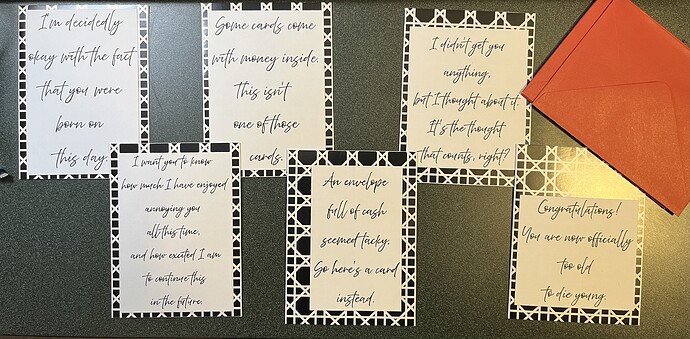 I'm decidedly
okay with the fact
that you were
born on
this day.
Some cards come
with money inside.
This isn't
one of those
cards.
I didn't get you
anything,
but I thought about it.
It's the thought
that counts, right?
I want you to know
how much I have enjoyed
annoying you
all this time,
and how excited I am
to continue this
in the future.
An envelope
full of cash
seemed tacky.
So here's a card
instead.
Congratulations!
You are now officially
too old
to die young.